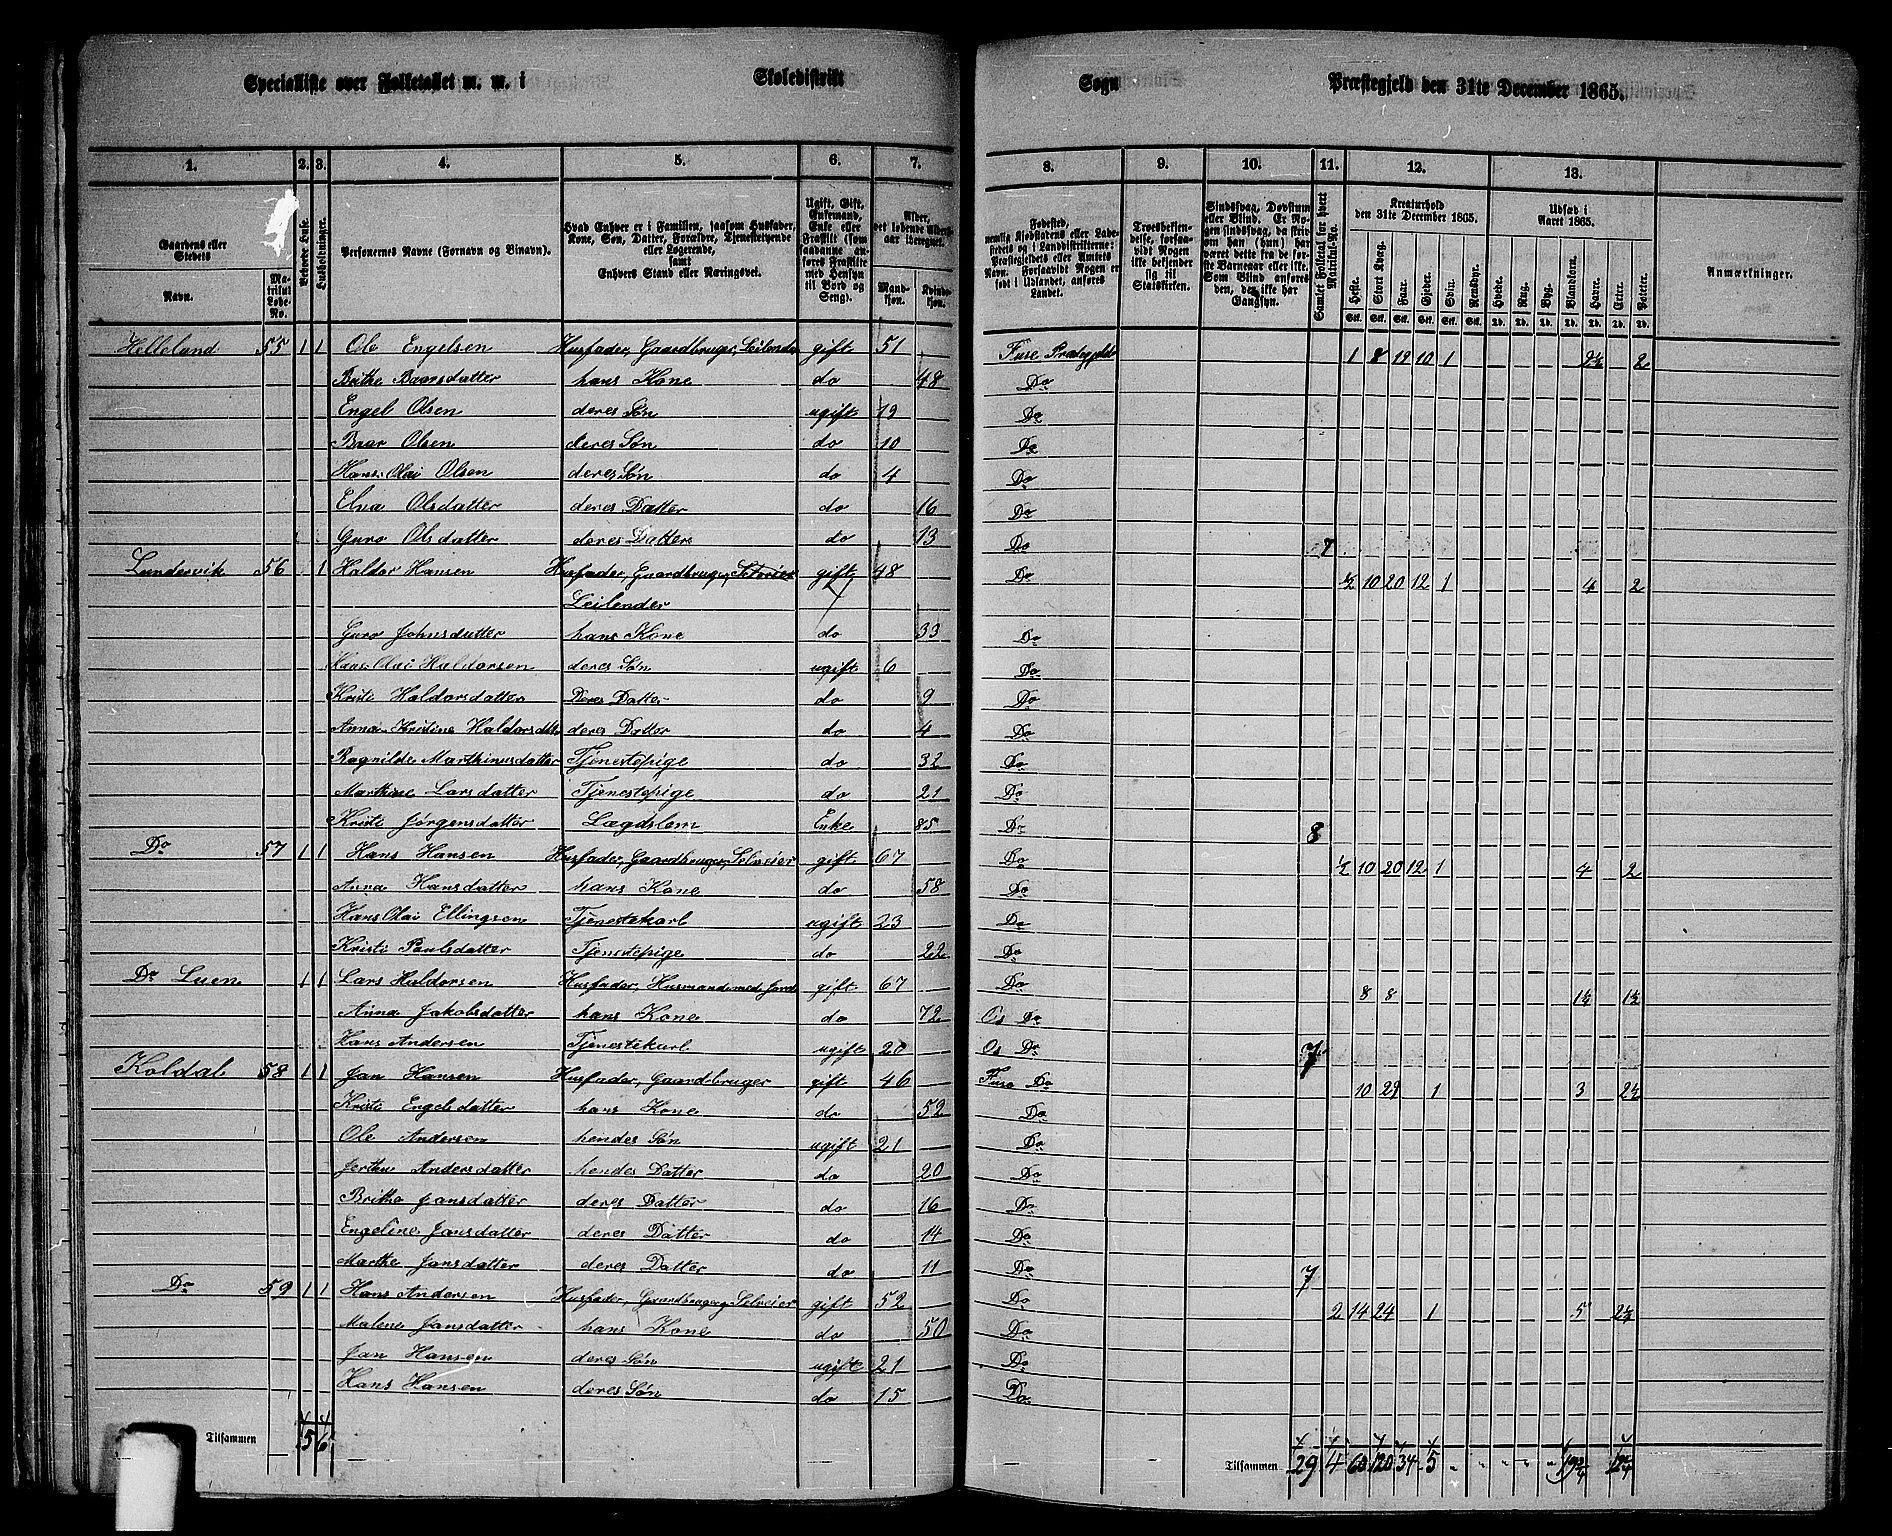 Specialliste over Folketallet m. m. i Skoledistrikt Sogn Præstegjeld den 31te December 1865.
1. 2. 3. 4. 5. 6. 7. 8. 9. 10. 11. 12. 13.
Gaardens eller Stedets Navn. Matrikul Løbe-No. Beboede Huse. Husholdninger. Personernes Navne (Fornavn og Binavn).
Hvad Enhver er i Familien, saasom Husfader, Kone, Søn, Datter, Forældre, Tjenestetyende eller Logerende, samt Enhvers Stand eller Næringsvei.
Ugift, Gift, Enkemand, Enke eller Fraskilt (som saadanne anføres Fraskilte med Hensyn til Bord og Seng).
Alder, det løbende Alders-aar iberegnet. Mandkjøn. Kvindekjøn.
Anmærkninger.
Kreaturhold den 31te December 1865. Udsæd i Aaret 1865.
Heste. Stort Kvæg. Faar. Gjeder. Svin. Rensdyr. Hvede. Rug. Byg. Blandkorn. Havre. Erter. Poteter.
Helleland 55 1 1 Ole Engelsen Husfader, Gaardbruger, Leilender gift 51 Fuse Præstegjeld 1 8 12 10 1 2½ 2
Brithe Baarsdatter hans Kone do 48 Do
Engel Olsen deres Søn ugift 19 Do
Baar Olsen deres Søn do 10 Do
Hans Olai Olsen deres Søn do 4 Do
Elna Olsdatter deres Datter do 16 Do
Guro Olsdatter deres Datter do 13 Do 7
Lundervik 56 1 Haldor Hansen Husfader, Gaardbruger, Selveier gift 48 Do ½ 10 20 12 1 4 2
Leilender
Guro Johnsdatter hans Kone do 33 Do
Hans Olai Haldorsen deres Søn ugift 6 Do
Kristi Haldorsdatter Deres Datter do 9 Do
Anna Kristine Haldorsdatter deres Datter do 4 Do
Ragnilde Marthinusdatter Tjenestepige do 32 Do
Marthine Larsdatter Tjenestepige do 21 Do
Kristi Jørgensdatter Lægdslem Enke 85 Do 8
Do 57 1 1 Hans Hansen Husfader, Gaardbruger, Selveier gift 67 Do ½ 10 20 12 1 4 2
Anna Hansdatter hans Kone do 58 Do
Hans Olai Ellingsen Tjenestekarl ugift 23 Do
Kristi Paulsdatter Tjenestepige do 22 Do
Do Luen 1 1 Lars Haldorsen Husfader, Husmand med Jord gift 67 Do 8 8 1½ 1½
Anna Jakobsdatter hans Kone do 72 Os Do
Hans Andersen Tjenestekarl ugift 20 Os Do 7
Koldal 58 1 1 Jan Hansen Husfader, Gaardbruger gift 46 Fuse Do 10 29 1 3 2½
Kristi Engelsdatter hans Kone do 52 Do
Ole Andersen hendes Søn ugift 21 Do
Jertru Andersdatter hendes Datter do 20 Do
Britha Jansdatter deres Datter do 16 Do
Engeline Jansdatter deres Datter do 14 Do
Marthe Jansdatter deres Datter do 11 Do 7
Do 59 1 1 Hans Andersen Husfader, Gaardbruger, Selveier gift 52 Do 2 14 24 1 5 2½
Malene Jansdatter hans Kone do 50 Do
Jan Hansen deres Søn ugift 21 Do
Hans Hansen deres Søn do 15 Do
Tilsammen 5 6 Tilsammen 29 4 60 120 34 5